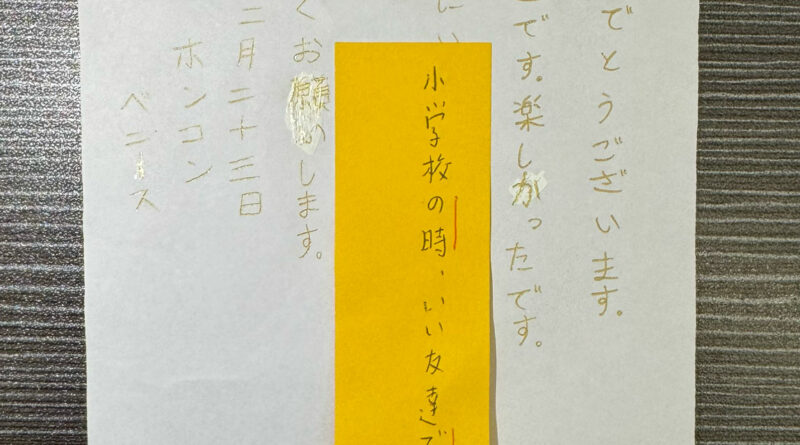 でとうございます。
です。楽しかったです。
にい
小学校の時、いい友達で
くお願いします。
二月二十三日
ホンコン
ベニース